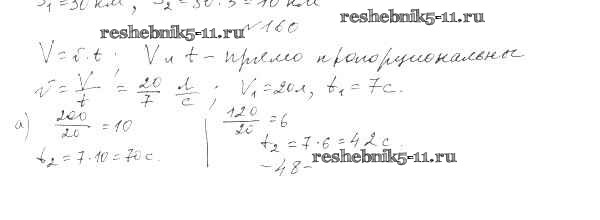 S₁=30 км, S₂=30·3=10 км
reshebnik5-11.ru
№160
reshebnik5-11.ru
V=v·t; V и t - прямо пропорциональны
v=V/t=20/7 л/с; V₁=20л, t₁=7с.
а) 200/20=10 | 120/20=6
t₂=7·10=70с. | t₂=7·6=42с.
reshebnik5-11.ru
-48-